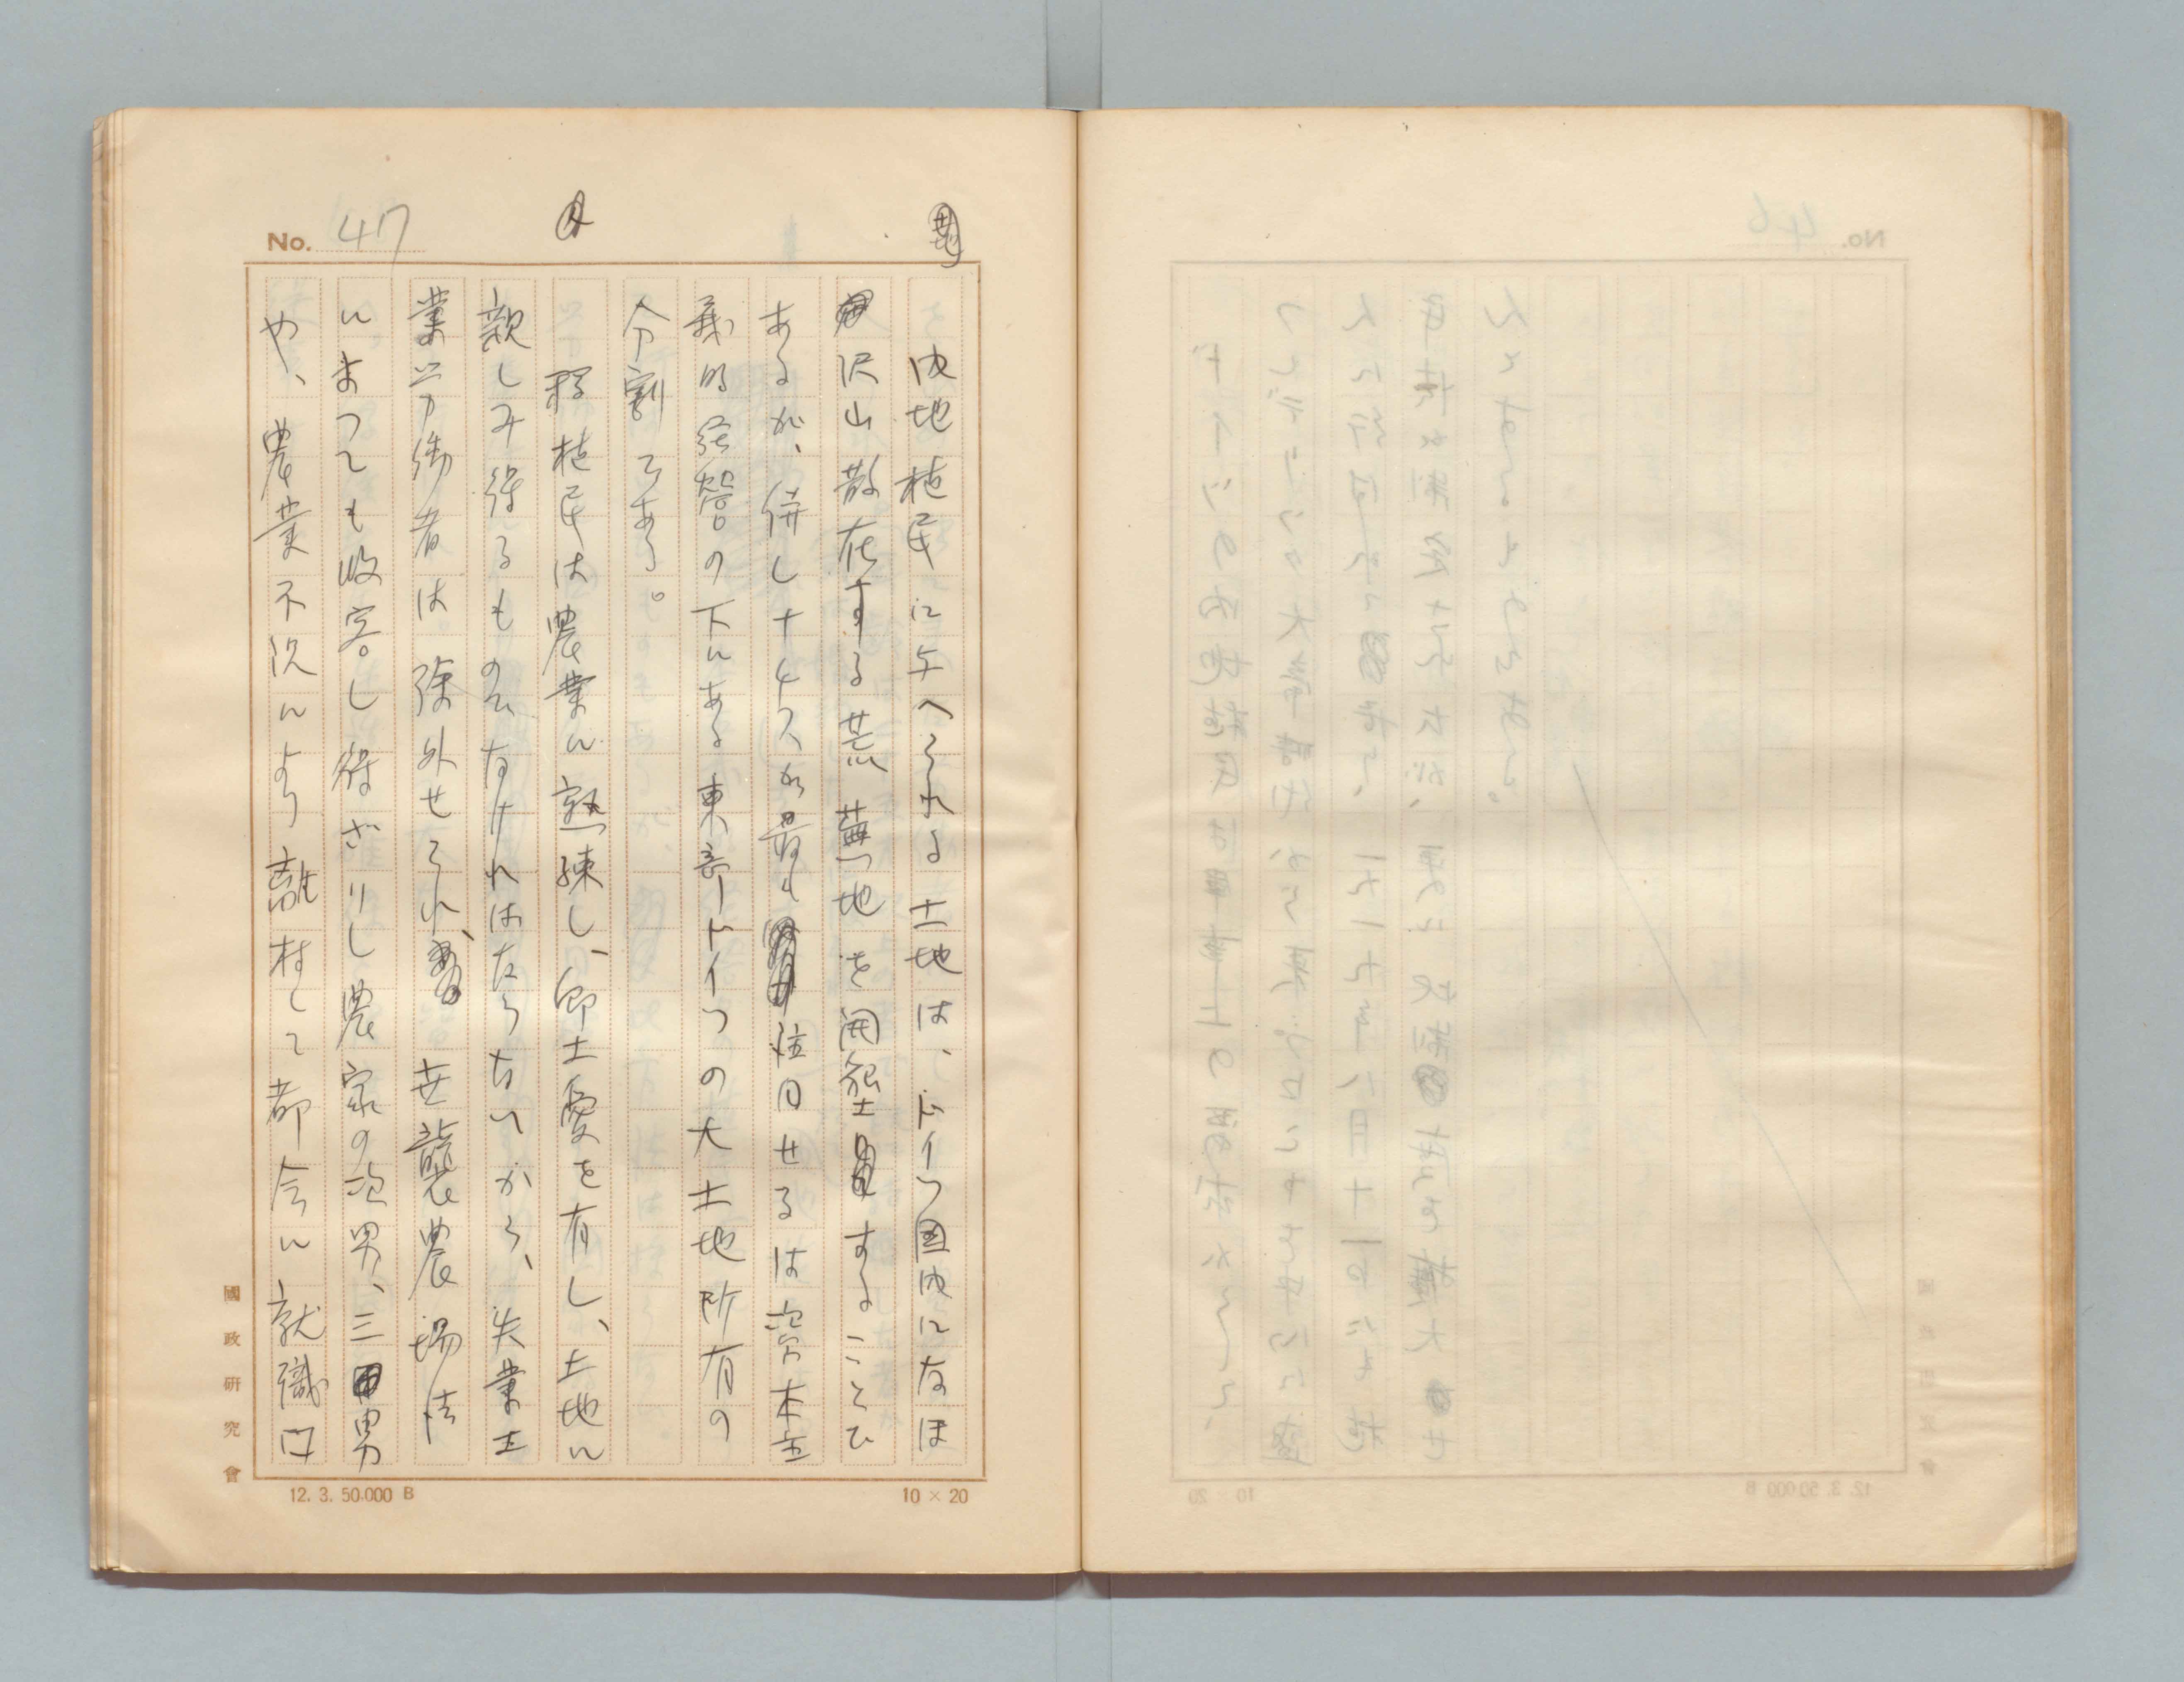 No. 47
内地植民に与へられる土地は、ドイツ国内になほ
沢山散在する荒蕪地を開墾することで
あるが、併しナチスが最も注目せるは資本主
義的経営の下にある東部ドイツの大土地所有の
分割である。
植民は農業に熟練し、郷土愛を有し、土地に
親しみ得るものでなければならないから、失業工
業労働者は除外せられ、世襲農場法
によつても収容し得ざりし農家の次男、三男
や、農業不況により離村して都会に就職口
國政研究會
12. 3. 50.000 B
10 × 20